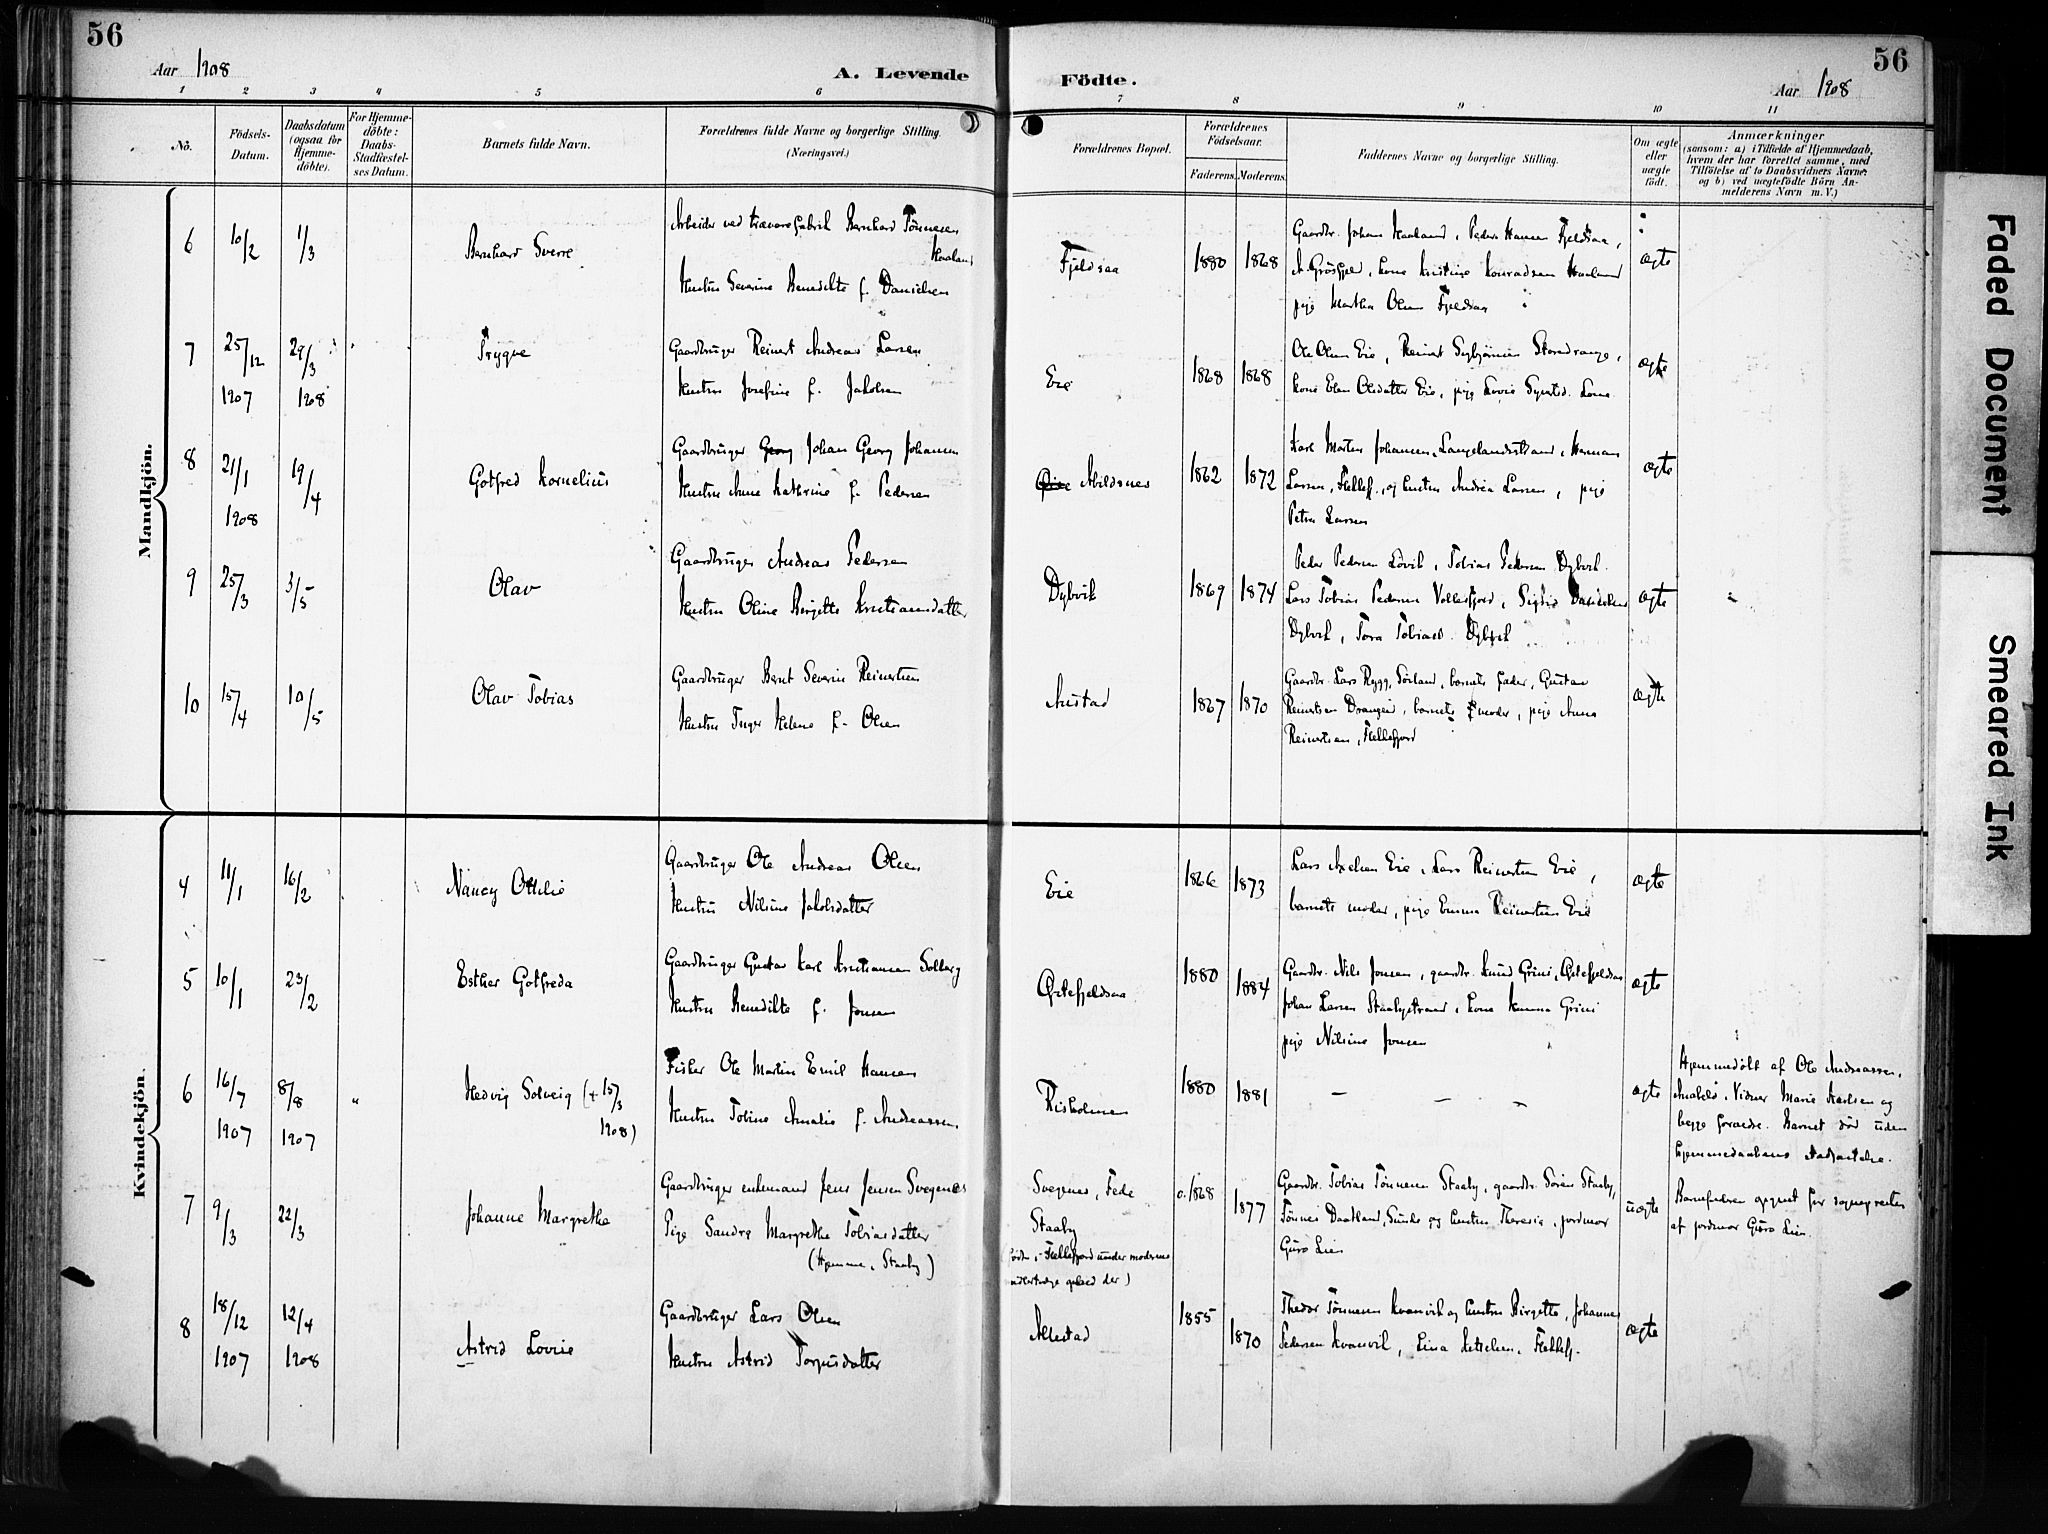 56
Aar 1908
A. Levende
Födte.
Aar 1908
56
1 2 3 4 5 6 7 8 9 10 11
No.
Födsels-
Datum.
Daabsdatum
(ogsaa for
Hjemme-
döbte).
For Hjemme-
döbte:
Daabs-
Stadfæstel-
ses Datum.
Barnets fulde Navn.
Forældrenes fulde Navne og borgerlige Stilling.
(Næringsvei.)
Forældrenes Bopæl.
Forældrenes
Födselsaar.
Faderens. Moderens.
Faddernes Navne og borgerlige Stilling.
Om ægte
eller
uægte
födt.
Anmærkninger
(saasom: a) i Tilfælde af Hjemmedaab,
hvem der har forrettet samme, med
Tilföielse af to Daabsvidners Navne;
og b) ved uægtefödte Börn An-
melderens Navn m. V.)
Mandkjön.
6 10/2 1/3 Bernhard Sverre
Arbeider ved trævarefabrik Bernhard Tönnesen
Haaland
Hustru Severine Benedikte f. Danielsen
Fjeldsaa 1880 1868
Gaardbr. Johan Haaland, Peder Hansen Fjeldsaa,
kone Kristine Konradsen Haaland
pige Martha Olsen Fjeldsaa
ægte
7 25/12 1907 29/3 1908 Trygve
Gaardbruger Reinert Andreas Larsen
Hustru Josefine f. Jakobsen
Eie 1868 1868
Ole Olsen Eie, Reinert
kone Elen Olsdatter Eie, pige Lovis
ægte
8 21/1 1908 19/4 Gotfred Kornelius
Gaardbruger Georg Johan Georg Johansen
Hustru Anne Kathrine f. Pedersen
Abildsnes 1862 1872
Karl Martin Johansen, Langelandsstrand, Herman
Larsen, Flekkef., og hustru Andrea Larsen, pige
Petra Larsen
ægte
9 25/3 3/5 Olav
Gaardbruger Andreas Pedersen
Hustru Oline Birgitte Kristiansdatter
Dybvik 1869 1874
Peder Pedersen Lövik, Tobias Pedersen Dybvik
Lars Tobias Pedersen Vollesfjord, Sigrid Danielsen
Dybvik, Tora Tobiasd. Dybvik
ægte
10 15/4 10/5 Olav Tobias
Gaardbruger Bernt Severin Reinertsen
Hustru Inger Helene f. Olsen
Austad 1867 1870
Gaardbr. Lars Rygg, Sörland, barnets fader, Gustav
Reinertsen Drangeid, barnets moder, pige Anna
Reinertsen, Flekkefjord
ægte
Kvindekjön.
4 11/1 16/2 Nancy Ottilie
Gaardbruger Ole Andreas Olsen
Hustru Nilsine Jakobsdatter
Eie 1866 1873
Lars Axelsen Eie, Lars Reinertsen Eie,
barnets moder, pige Emma Reinertsen Eie
ægte
5 10/1 23/2 Esther Gotfreda
Gaardbruger Gustav Karl Kristiansen Solberg
Hustru Benedikte f. Jonsen
Östefjeldsaa 1880 1884
Gaardbr. Nils Jonsen, gaardbr. Knud Grini, Östefjeldsaa
Johan Larsen Staalystrand, kone Hanna Grini
pige Nilsine Jonsen
ægte
6 16/7 1907 8/8 1907 " Hedvig Solveig († 15/3
1908)
Fisker Ole Martin Emil Hansen
Hustru Tobine Amalie f. Andreassen
Risholmen 1880 1881
— — —
ægte
Hjemmedöbt af Ole Andreassen,
Anabelö. Vidner Marie Karlsen og
begge forældre. Barnet död uden
hjemmedaabens stadfæstelse.
7 9/3 22/3 Johanne Margrethe
Gaardbruger enkemand Jens Jensen Svegenes
Pige Sandra Margrethe Tobiasdatter
(Hjemme, Staaby)
Svegenes, Fede
Staaby
(födt i Flekkefjord under moderens
ophold der)
c. 1868 1877
Gaardbr. Tobias Tönnesen Staaby, gaardbr. Sören Staaby,
Tönnes Daatland, Sunde og hustru Theresia, jordmor
Guro Lien
uægte
Barnefaderen opgivet for sognepresten
af jordmor Guro Lien.
8 18/12 1907 12/4 1908 Astrid Lovise
Gaardbruger Lars Olsen
Hustru Astrid Torgusdatter
Allestad 1855 1870
Thedor Tönnesen Kvanvik og hustru Birgitte, Johannes
Pedersen Kvanvik, Lina Ketelsen, Flekkef.
ægte
Faded Document
Smeared Ink